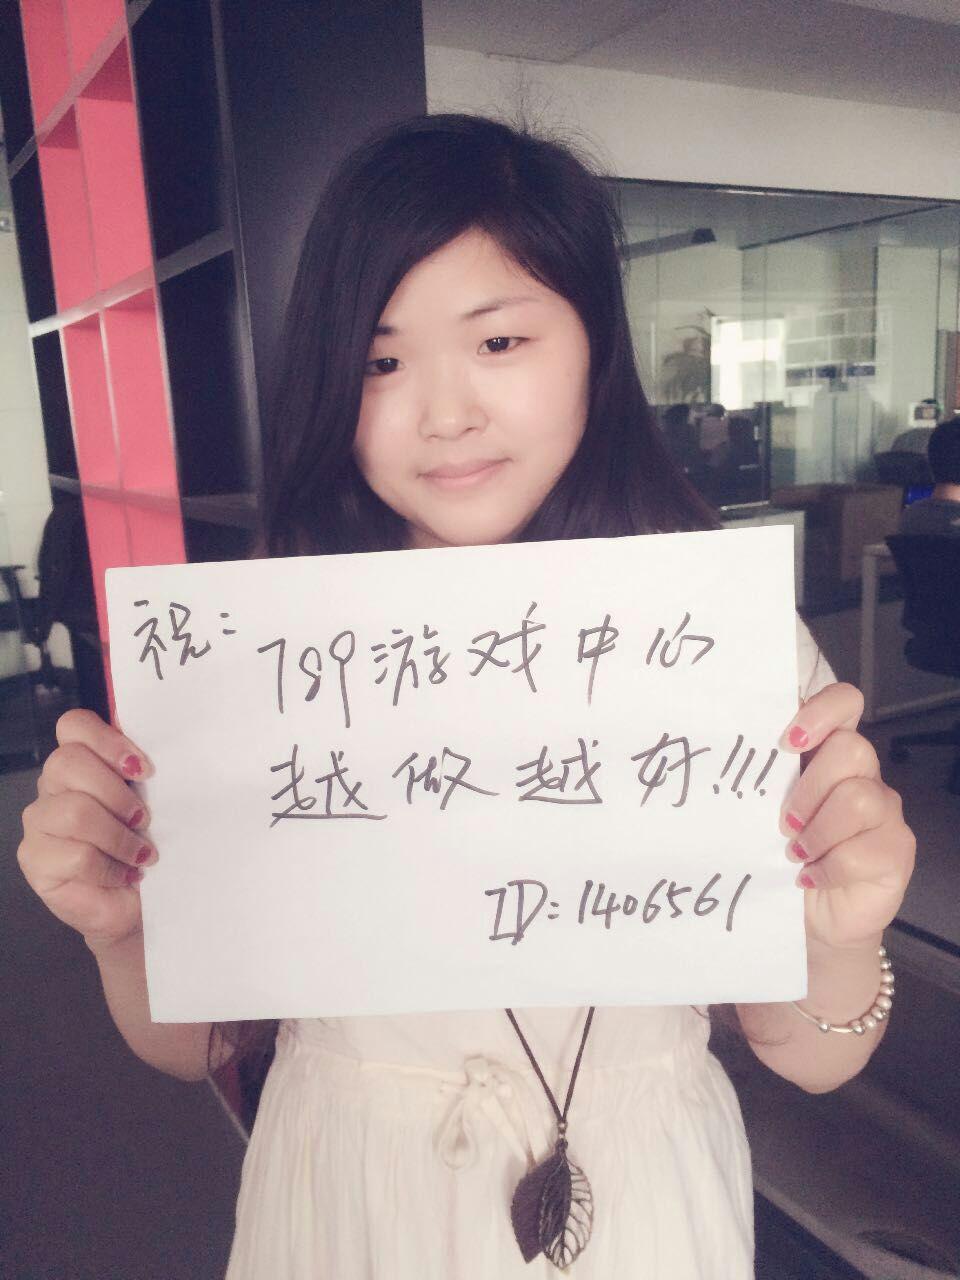 祝:789游戏中心
越做越好!!!
ID:1406561